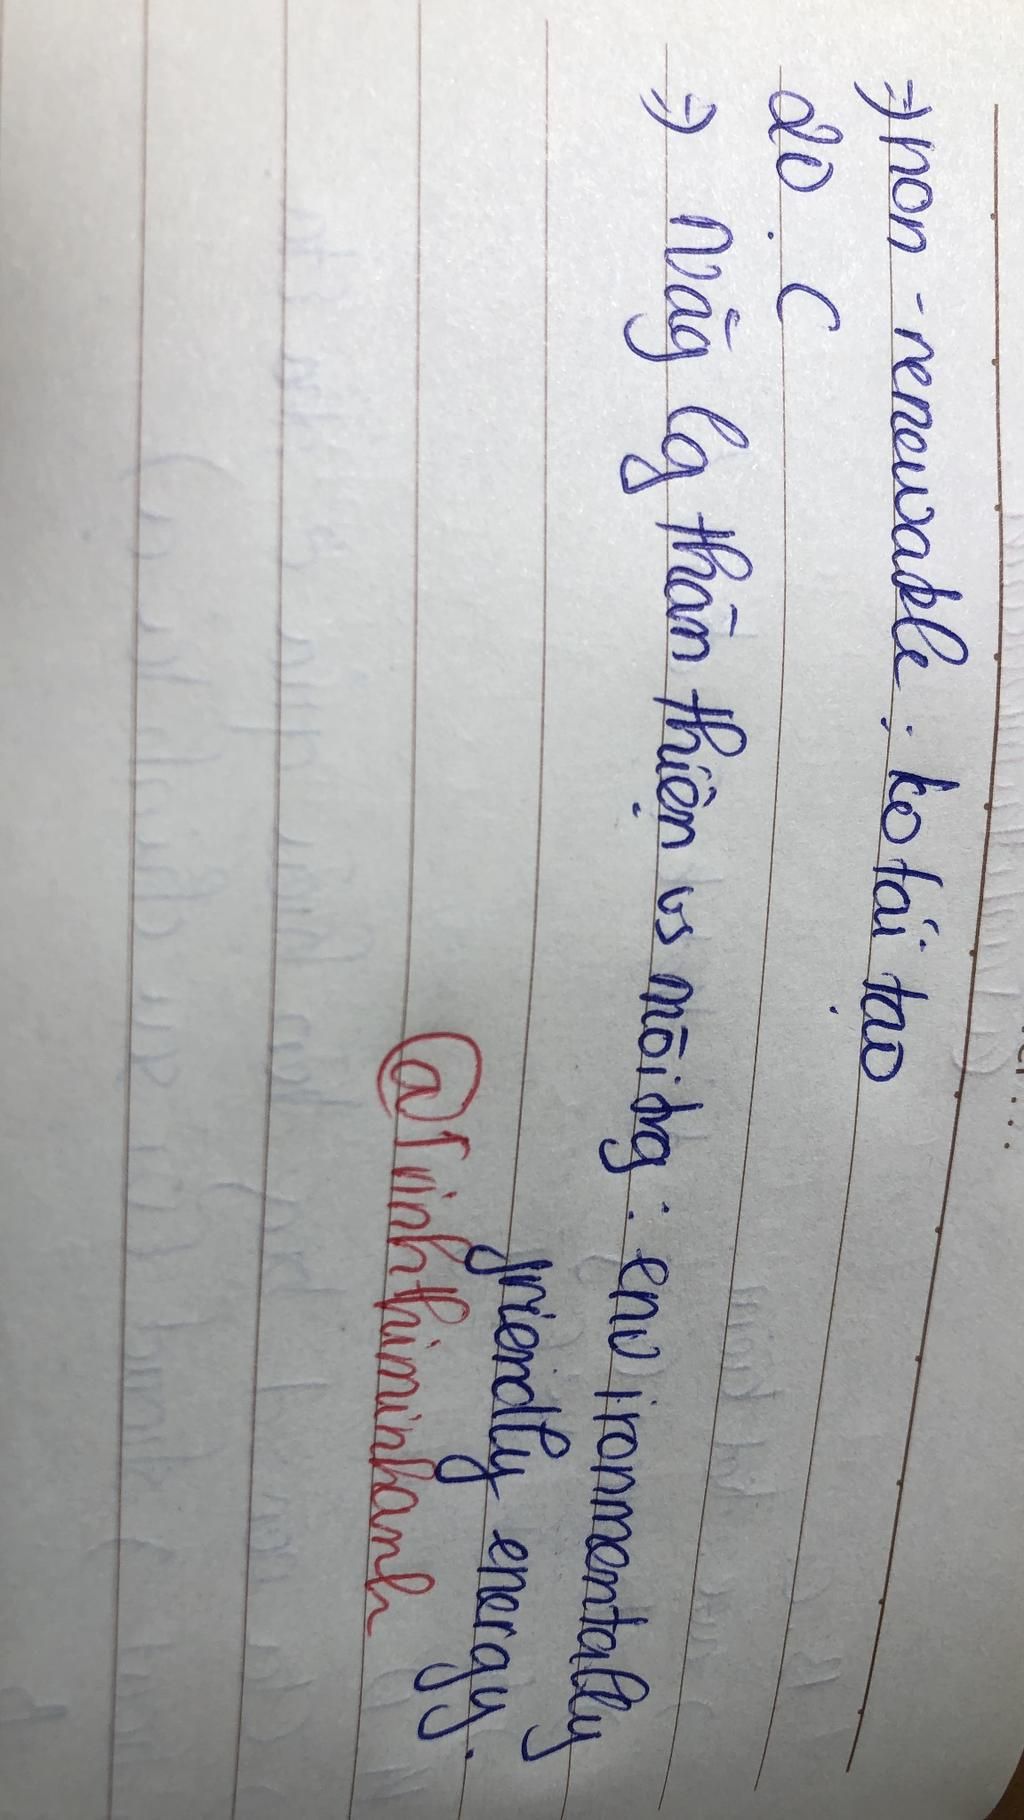 =) non - renewable : ko tái tạo
20 . C
=) Năg lg thân thiện vs môi trg : environmentally
friendly energy.
@Trinhthiminhanh